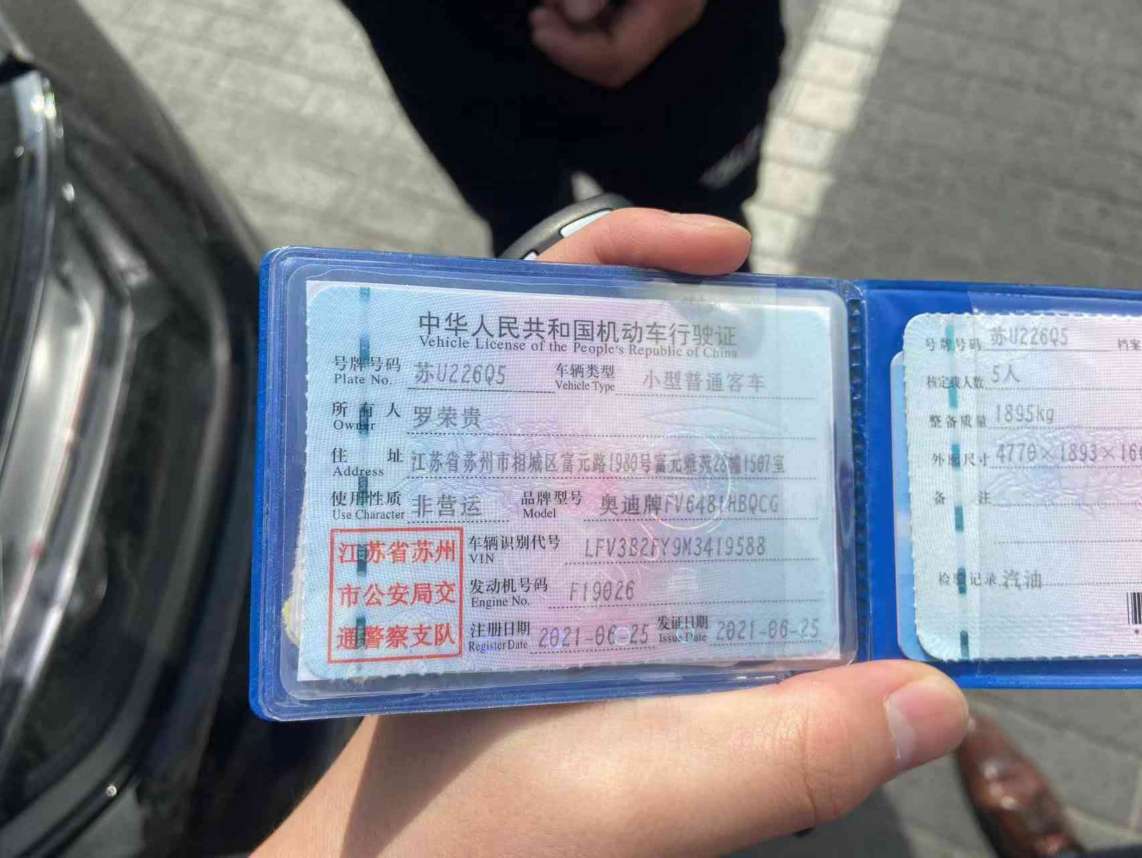 中华人民共和国机动车行驶证
Vehicle License of the People's Republic of China
号牌号码 苏U226Q5 车辆类型 小型普通客车
Plate No. Vehicle Type
所有人 罗荣贵
Owner
住址 江苏省苏州市相城区富元路1980号富元雅苑28幢1507室
Address
使用性质 非营运 品牌型号 奥迪牌FV6481HBQCG
Use Character Model
江苏省苏州
市公安局交
通警察支队
车辆识别代号 LFV3B2FY9M3419588
VIN
发动机号码 F19026
Engine No.
注册日期 2021-06-25 发证日期 2021-06-25
Register Date Issue Date
号牌号码 苏U226Q5 档案
核定载人数 5人
整备质量 1895kg
外廓尺寸 4770×1893×16
备注
检验记录 汽油